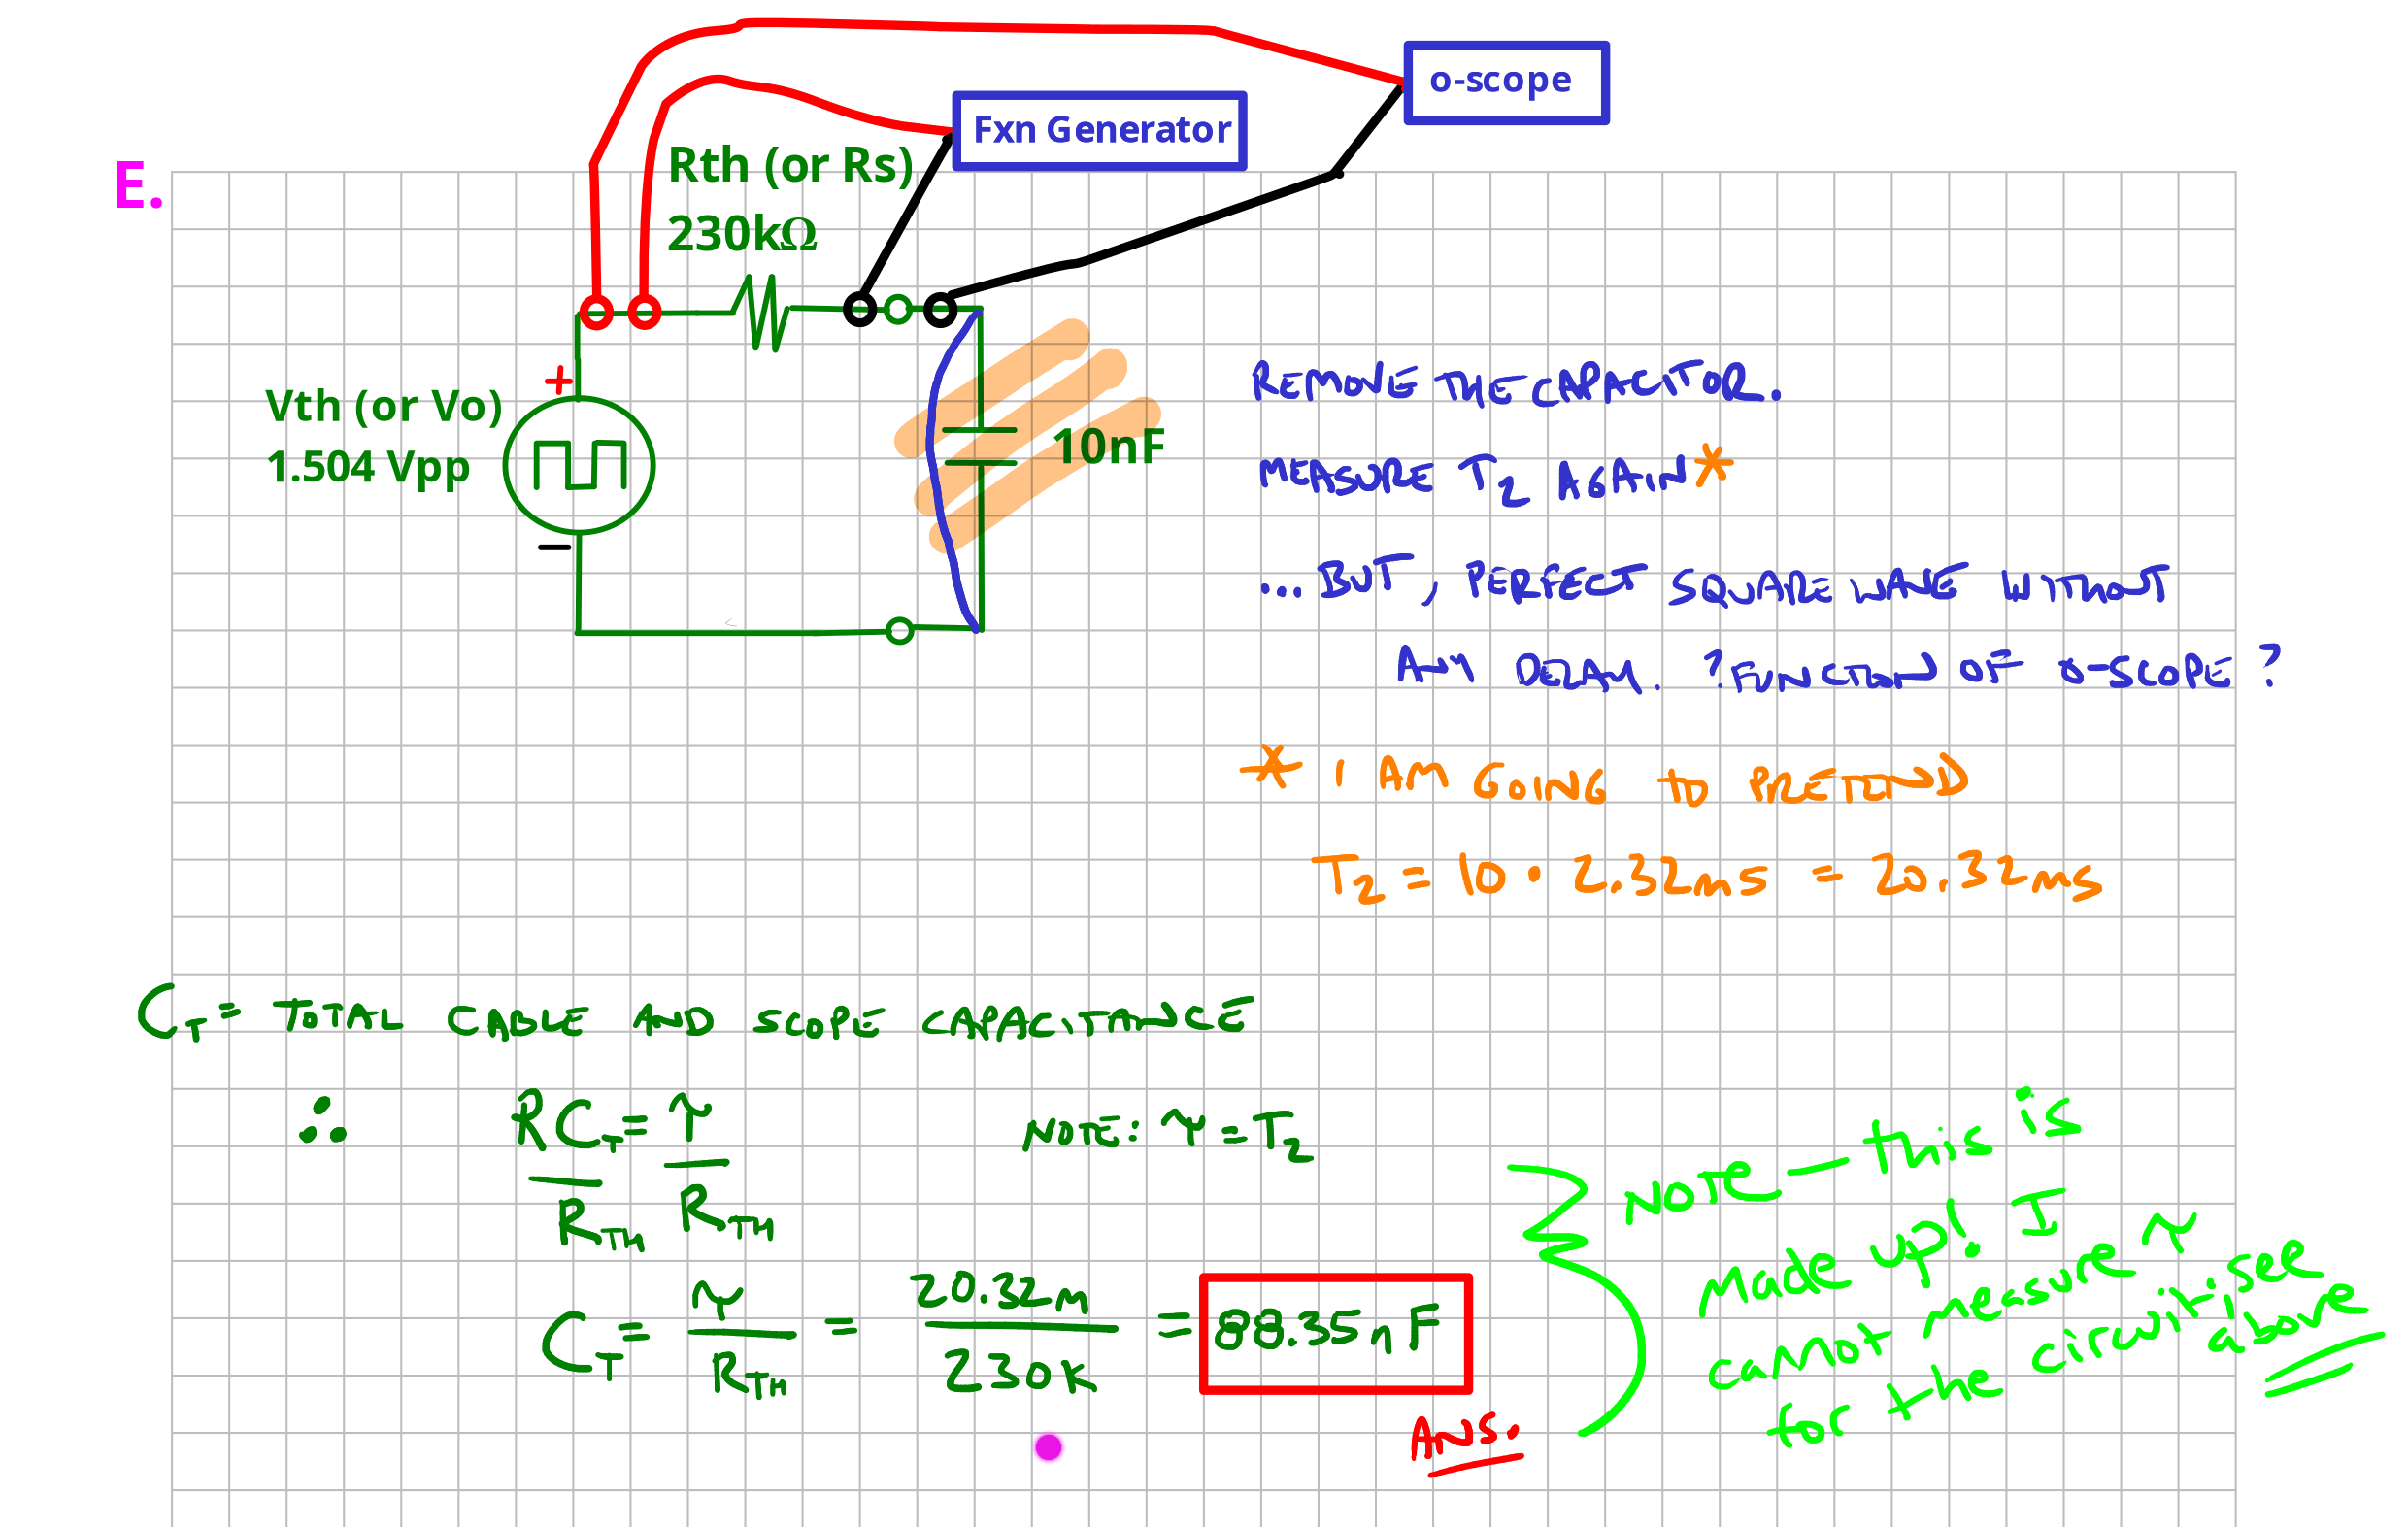 o-scope
Fxn Generator
E.
Rth (or Rs)
230kΩ
+
Vth (or Vo)
1.504 Vpp
10nF
−
REMOVE THE CAPACITOR.
MEASURE T2 AGAIN*
...BUT, PERFECT SQUARE WAVE WITHOUT
ANY DECAY. ?FUNCTION OF O-SCOPE?
* I AM GOING TO PRETEND
T2 = 10 · 2.32ms = 20.32ms
CT = TOTAL CABLE AND SCOPE CAPACITANCE
∴ RCT = τ NOTE: τ = T2
RTH RTH
CT = τ/RTH = 20.32m/230K = 88.35nF
ANS.
NOTE – this is
made up! I
cannot measure τ
for the circuit, see
above